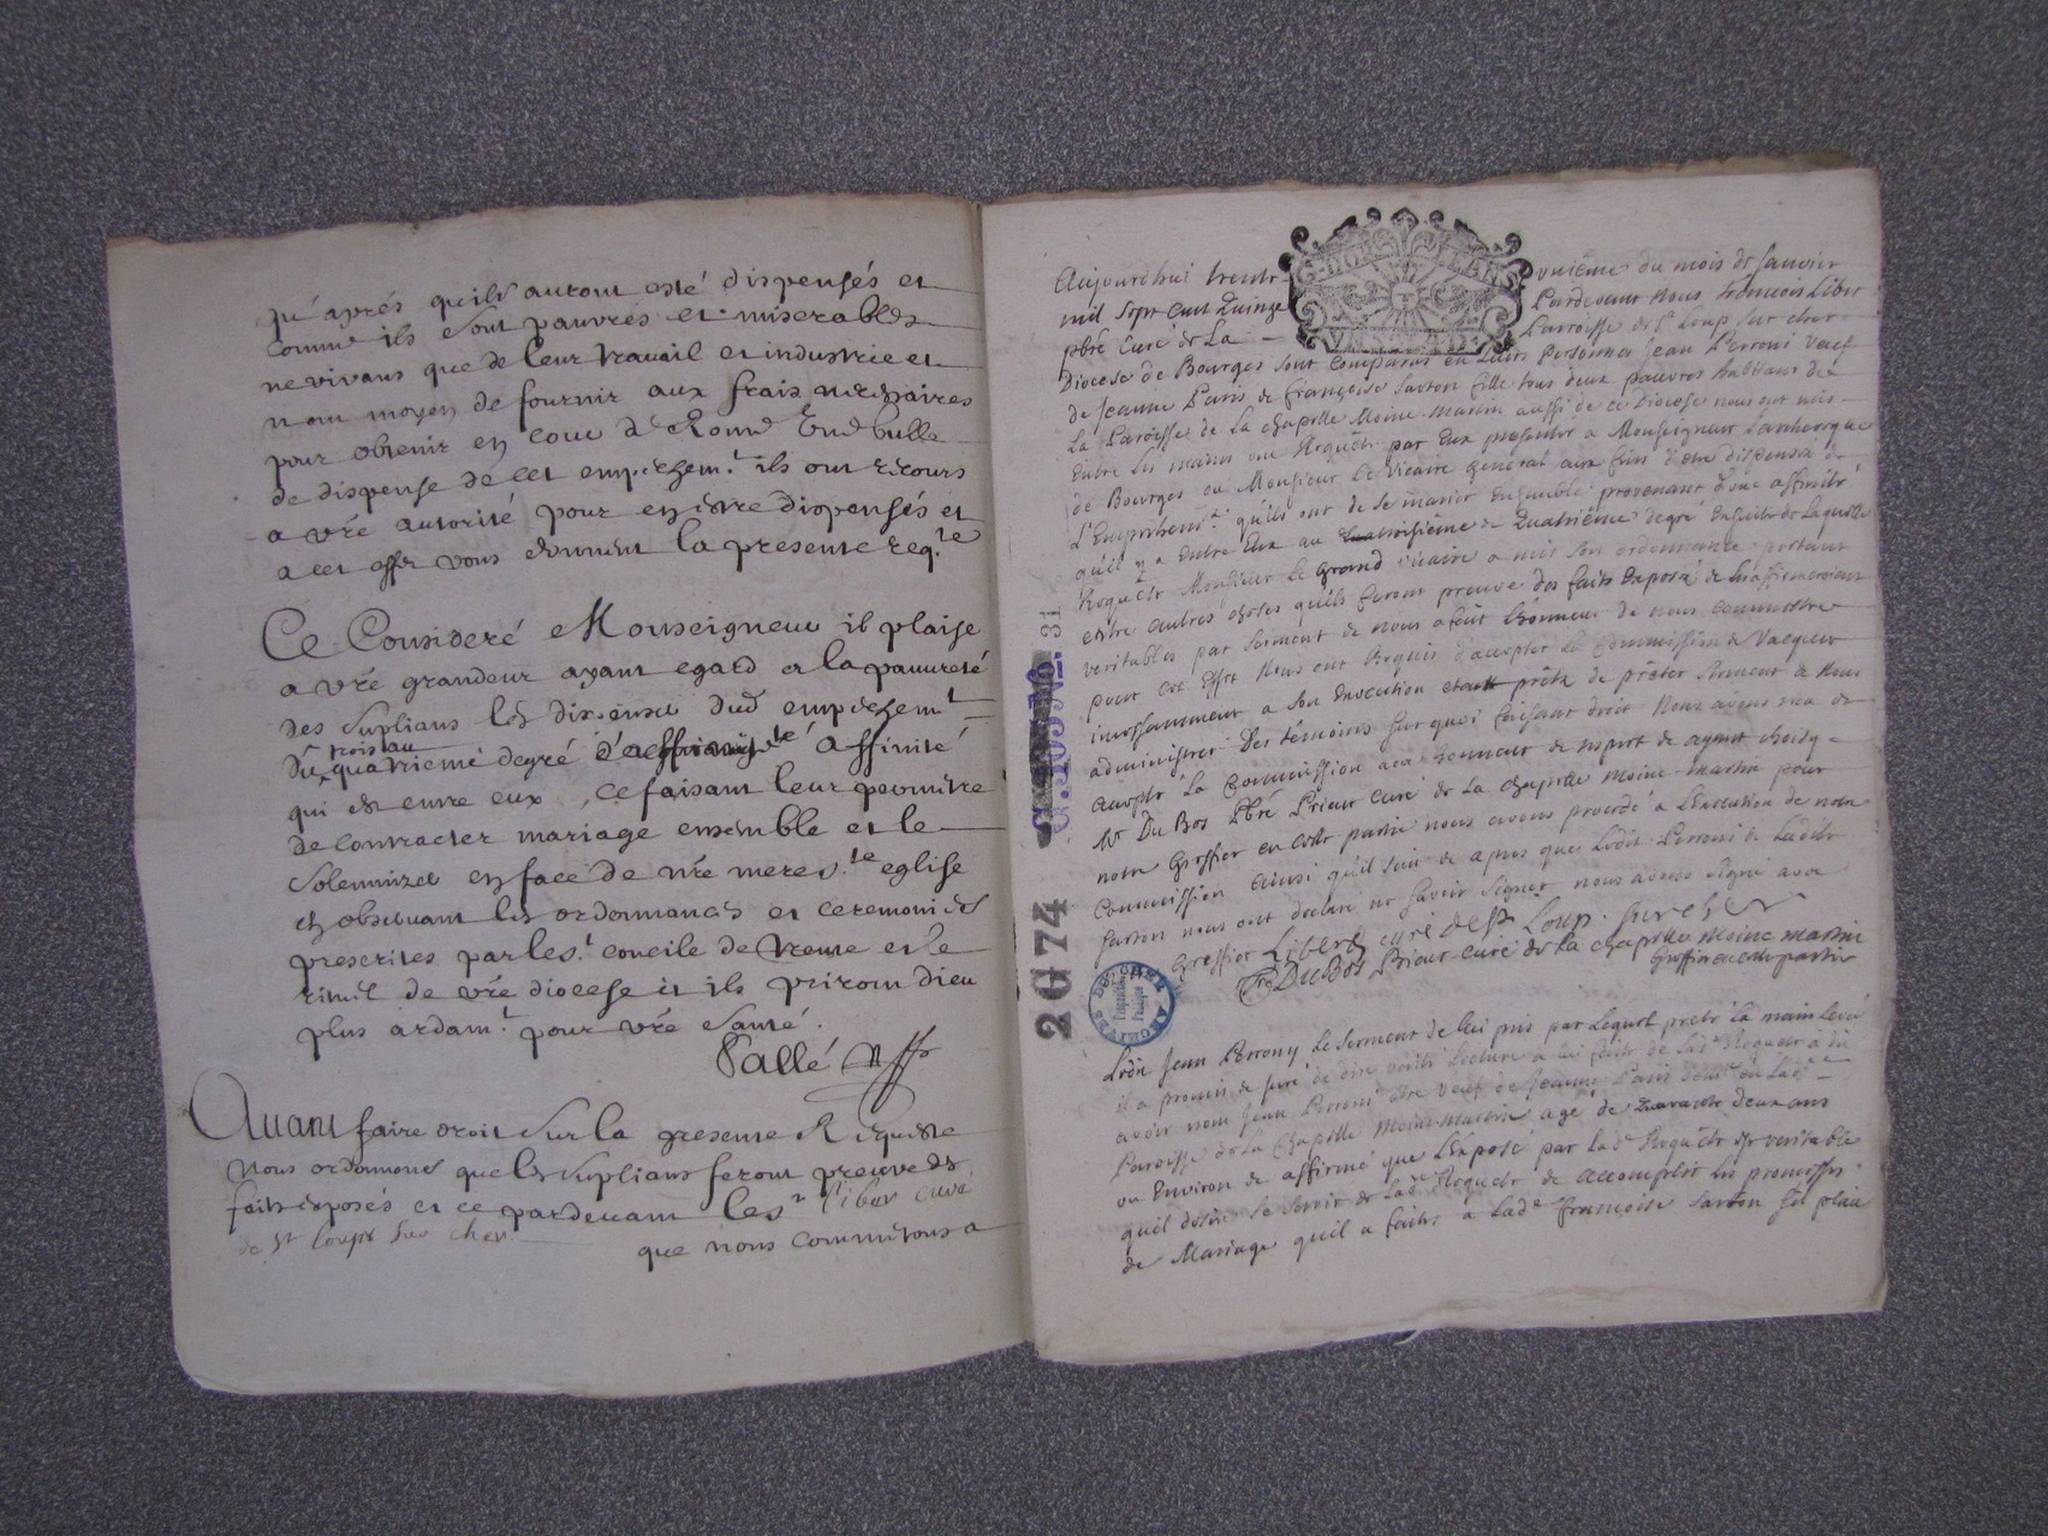 qu'aprés quils auront esté dispensés et
comme ils sont pauvres et miserables
ne vivans que de leur travail et industrie et
nont moyen de fournir aux frais necessaires
pour obtenir en cour de Rome une bulle
de dispense de cet empeschemt. ils ont recours
a vre autorité pour en estre dispensés et
a cet effet vous donnent la presente reqte
Ce Consideré Monseigneur il plaise
a vre grandeur ayant egard a la pauvreté
des suplians les dispenser dud empeschemt
du trois au quatrieme degré affinité
qui est entre eux, ce faisant leur permettre
de contracter mariage ensemble et le
solemnizer en face de nre mere ste eglise
en observant les ordonnances et ceremonies
prescrites par le st. concile de trente et le
rituel de vre diocese et ils priront dieu
plus ardamt. pour vre santé.
Pallé
Avant faire droit sur la presente Requeste
nous ordonnons que les suplians feront preuve des
faits exposés et ce pardevant le sr Liber curé
de st Loupt sur cher que nous commettons a
Aujourdhui trente uniême du mois de Janvier
mil sept cent Quinze Pardevant nous francois Liber
pbre curé de La Parroisse de St Loup sur cher
Diocese de Bourges sont comparus en leurs personnes Jean Perroni veuf
de Jeanne Paris & françoise sarton fille tous deux pauvres habitans de
la Paroisse de La chapelle Moine-Martin aussi de ce Diocese nous ont mis
Entre les mains une Requête par Eux presentée a Monseigneur Larcheveque
de Bourges ou Monsieur le Vicaire general aux fins d'être dispensés de
L'Empechemt. qu'ils ont de se marier Ensemble provenant d'une affinité
qu'il y a Entre Eux au troisiéme & Quatriéme degré Ensuite de Laquelle
Requete Monsieur le Grand vicaire a mis son ordonnance portant
entre autres choses qu'ils feront preuve des faits Exposés & les affirmeroient
veritables par serment & nous a fait Lhonneur de nous commettre
pour cet Effet Nous ont Requis d'accepter la Commission & Vacquer
incessamment a son Execution prêts de prêter serment & Nous
administrer Des têmoins sur quoi faisant droit Nous avons veu et
accepté la Commission avec honneur & respect & ayant choisy
Mr DuBos Pbré Prieur curé de La chapelle Moine-Martin pour
notre Greffier en cette partie nous avons procedé a L'Execution de notre
Commission ainsi qu'il suit & apres que Ledit Perroni & Ladite
sarton nous ont declaré ne savoir signer nous avons signé avec
Greffier Liber curé de St Loup sur cher
DuBos Prieur-curé de la chapelle Moine martin
Greffier en cette partie
Ledit Jean Perrony le serment de lui pris par Lequel preté la main levée
il a promis & juré de dire verité Lecture a lui faite de lade Requete a dit
avoir nom Jean Perroni être veuf de Jeanne Paris demt en Lade
Paroisse de La Chapelle Moine-Martin agé de Quarante deux ans
ou Environ & affirmé que L'Exposé par lade Requête est veritable
quil desire se servir de lade Requete & accomplir les promesses
de Mariage quil a faites a Lade françoise sarton s'il plait
2074
C. 105 No. 31
ARCHIVES DU CHER
Propriété
Publique